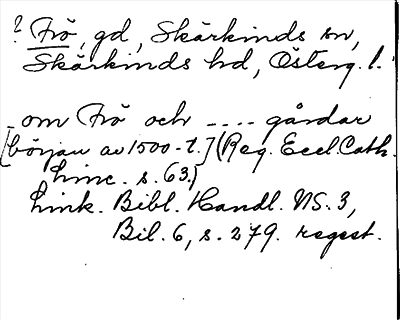 ? Frö, gd, Skärkinds sn,
Skärkinds hd, Österg. l.
_om Frö och .... gårdar
[början av 1500-t.] (Reg. Eccl. Cath.
Linc. s. 63.)
Link. Bibl. Handl. NS. 3,
Bil. 6, s. 279. regest.